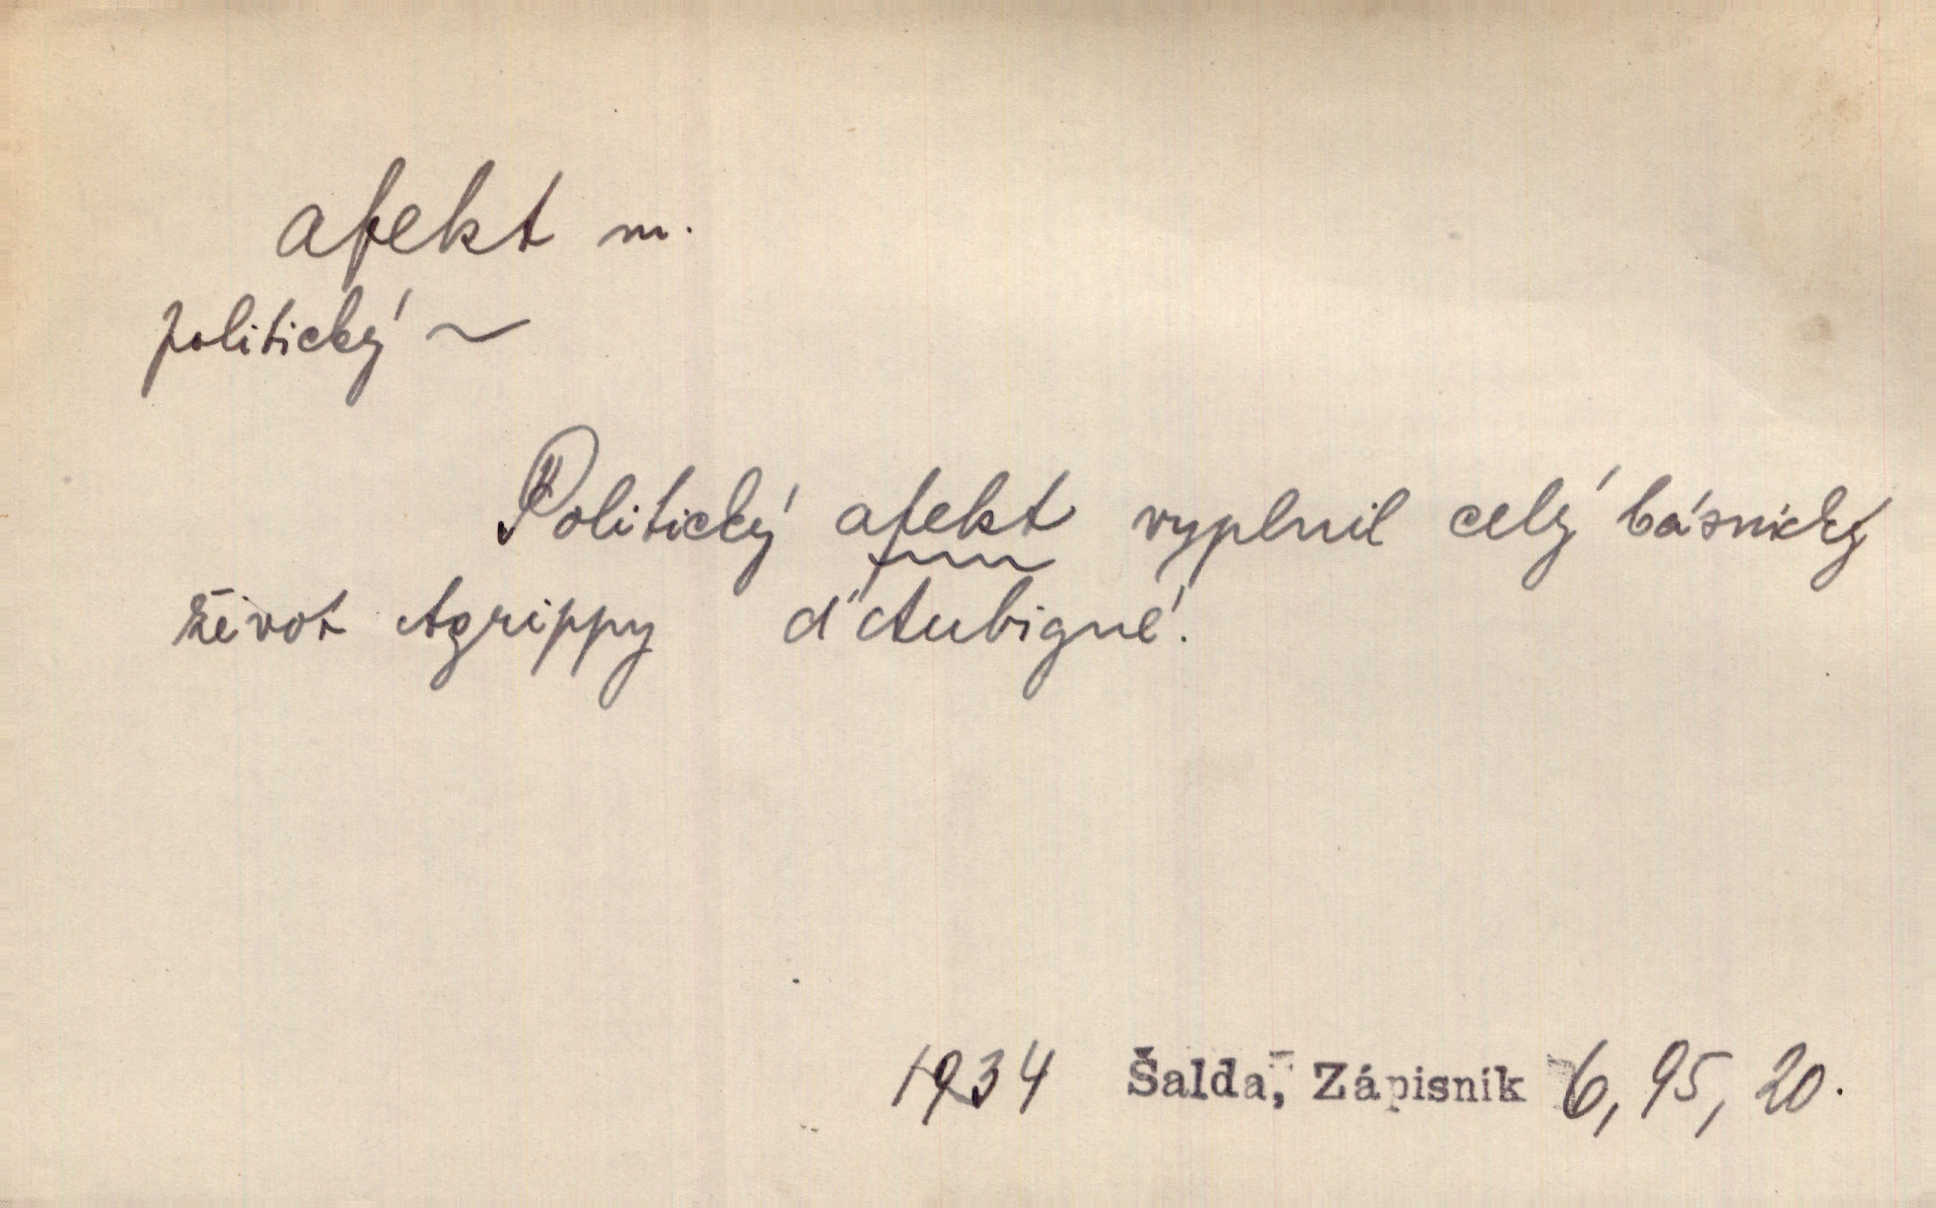 afekt m.
politický ~
Politický afekt vyplnil celý básnický
život Agrippy d'Aubigné.
1934 Šalda, Zápisník 6, 95, 20.